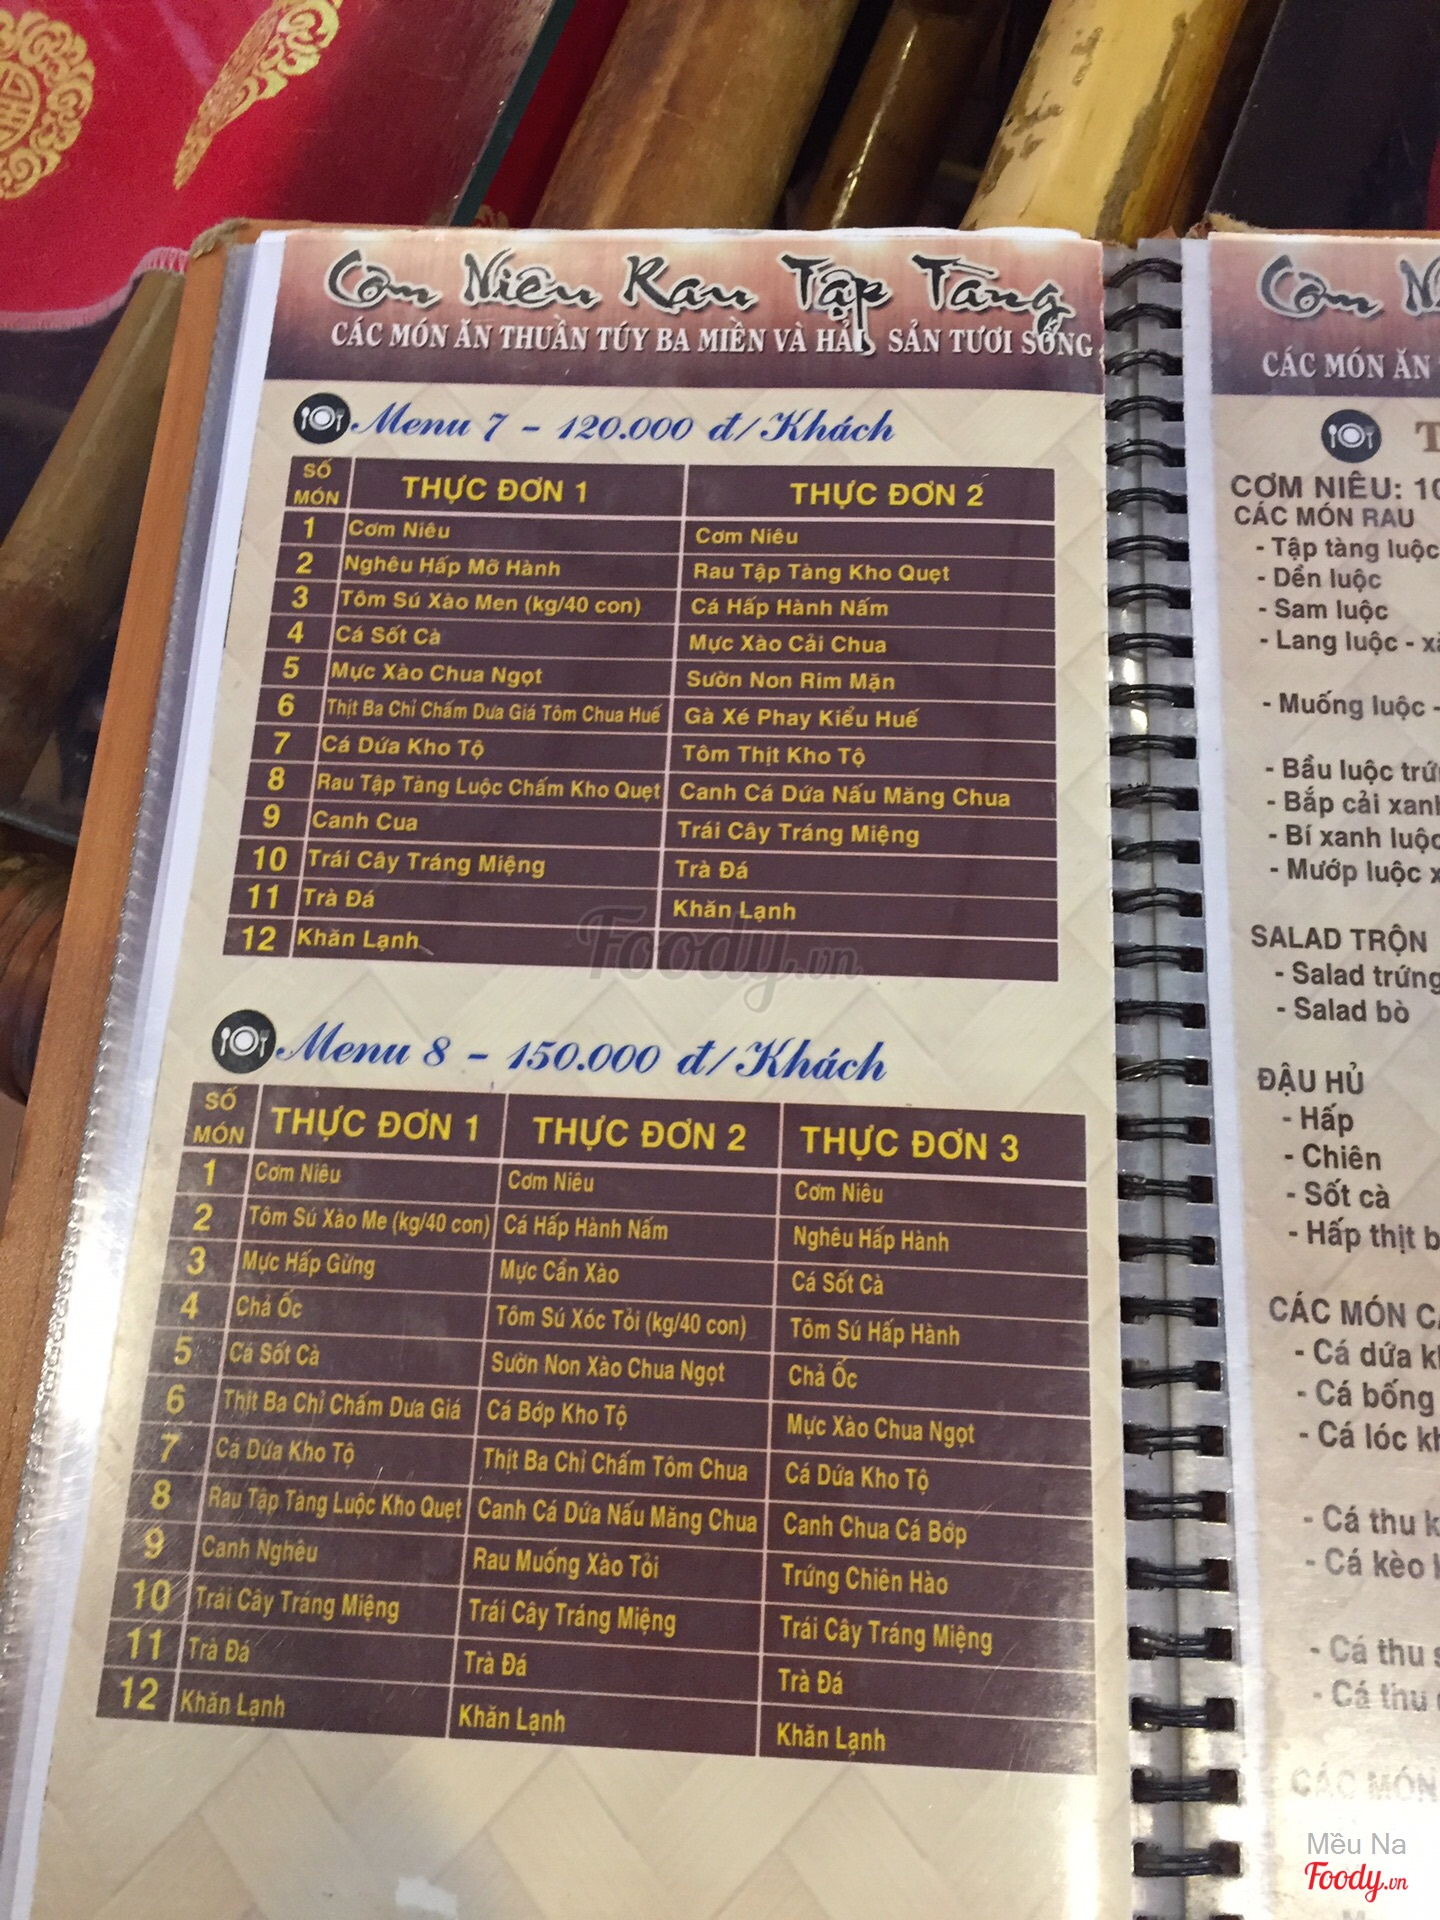 Cơm Niêu Rau Tập Tàng
CÁC MÓN ĂN THUẦN TÚY BA MIỀN VÀ HẢI SẢN TƯƠI SỐNG
Menu 7 - 120.000 đ/Khách
SỐ MÓN THỰC ĐƠN 1 THỰC ĐƠN 2
1 Cơm Niêu Cơm Niêu
2 Nghêu Hấp Mỡ Hành Rau Tập Tàng Kho Quẹt
3 Tôm Sú Xào Men (kg/40 con) Cá Hấp Hành Nấm
4 Cá Sốt Cà Mực Xào Cải Chua
5 Mực Xào Chua Ngọt Sườn Non Rim Mặn
6 Thịt Ba Chỉ Chấm Dưa Giá Tôm Chua Huế Gà Xé Phay Kiểu Huế
7 Cá Dứa Kho Tộ Tôm Thịt Kho Tộ
8 Rau Tập Tàng Luộc Chấm Kho Quẹt Canh Cá Dứa Nấu Măng Chua
9 Canh Cua Trái Cây Tráng Miệng
10 Trái Cây Tráng Miệng Trà Đá
11 Trà Đá Khăn Lạnh
12 Khăn Lạnh
Foody.vn
Menu 8 - 150.000 đ/Khách
SỐ MÓN THỰC ĐƠN 1 THỰC ĐƠN 2 THỰC ĐƠN 3
1 Cơm Niêu Cơm Niêu Cơm Niêu
2 Tôm Sú Xào Me (kg/40 con) Cá Hấp Hành Nấm Nghêu Hấp Hành
3 Mực Hấp Gừng Mực Cần Xào Cá Sốt Cà
4 Chả Ốc Tôm Sú Xóc Tỏi (kg/40 con) Tôm Sú Hấp Hành
5 Cá Sốt Cà Sườn Non Xào Chua Ngọt Chả Ốc
6 Thịt Ba Chỉ Chấm Dưa Giá Cá Bớp Kho Tộ Mực Xào Chua Ngọt
7 Cá Dứa Kho Tộ Thịt Ba Chỉ Chấm Tôm Chua Cá Dứa Kho Tộ
8 Rau Tập Tàng Luộc Kho Quẹt Canh Cá Dứa Nấu Măng Chua Canh Chua Cá Bớp
9 Canh Nghêu Rau Muống Xào Tỏi Trứng Chiên Hào
10 Trái Cây Tráng Miệng Trái Cây Tráng Miệng Trái Cây Tráng Miệng
11 Trà Đá Trà Đá Trà Đá
12 Khăn Lạnh Khăn Lạnh Khăn Lạnh
Cơm N
CÁC MÓN ĂN
T
CƠM NIÊU: 10
CÁC MÓN RAU
- Tập tàng luộc
- Dền luộc
- Sam luộc
- Lang luộc - xà
- Muống luộc -
- Bầu luộc trứ
- Bắp cải xanh
- Bí xanh luộc
- Mướp luộc x
SALAD TRỘN
- Salad trứng
- Salad bò
ĐẬU HỦ
- Hấp
- Chiên
- Sốt cà
- Hấp thịt b
CÁC MÓN CÁ
- Cá dứa kh
- Cá bống
- Cá lóc kh
- Cá thu k
- Cá kèo k
- Cá thu s
- Cá thu
CÁC MÓN
Mều Na
Foody.vn